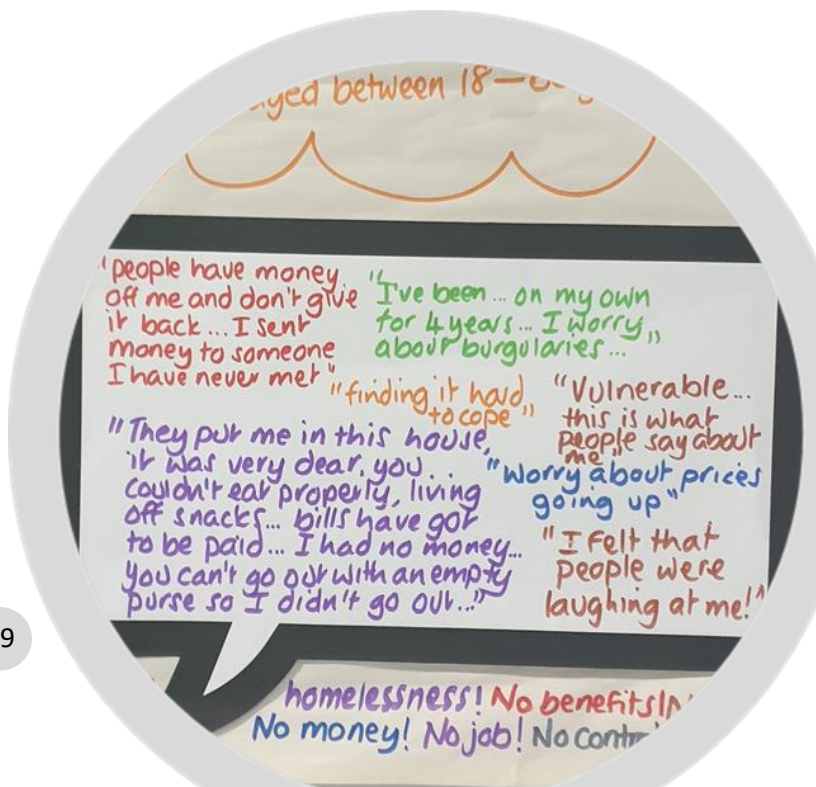 aged between 18-
"people have money
off me and don't give
it back... I sent
money to someone
I have never met"
"I've been... on my own
for 4 years... I worry
about burgularies..."
"finding it hard
to cope"
"Vulnerable...
this is what
people say about
me"
"They put me in this house,
it was very dear, you...
couldn't eat properly, living
off snacks... bills have got
to be paid... I had no money...
you can't go out with an empty
purse so I didn't go out..."
"Worry about prices
going up"
"I felt that
people were
laughing at me!"
homelessness! No benefits!
No money! No job! No
9